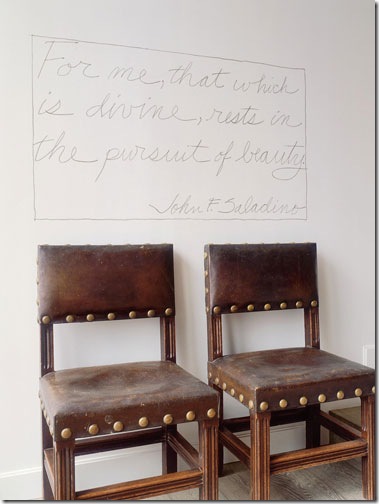 For me, that which
is divine, rests in
the pursuit of beauty.
John F. Saladino